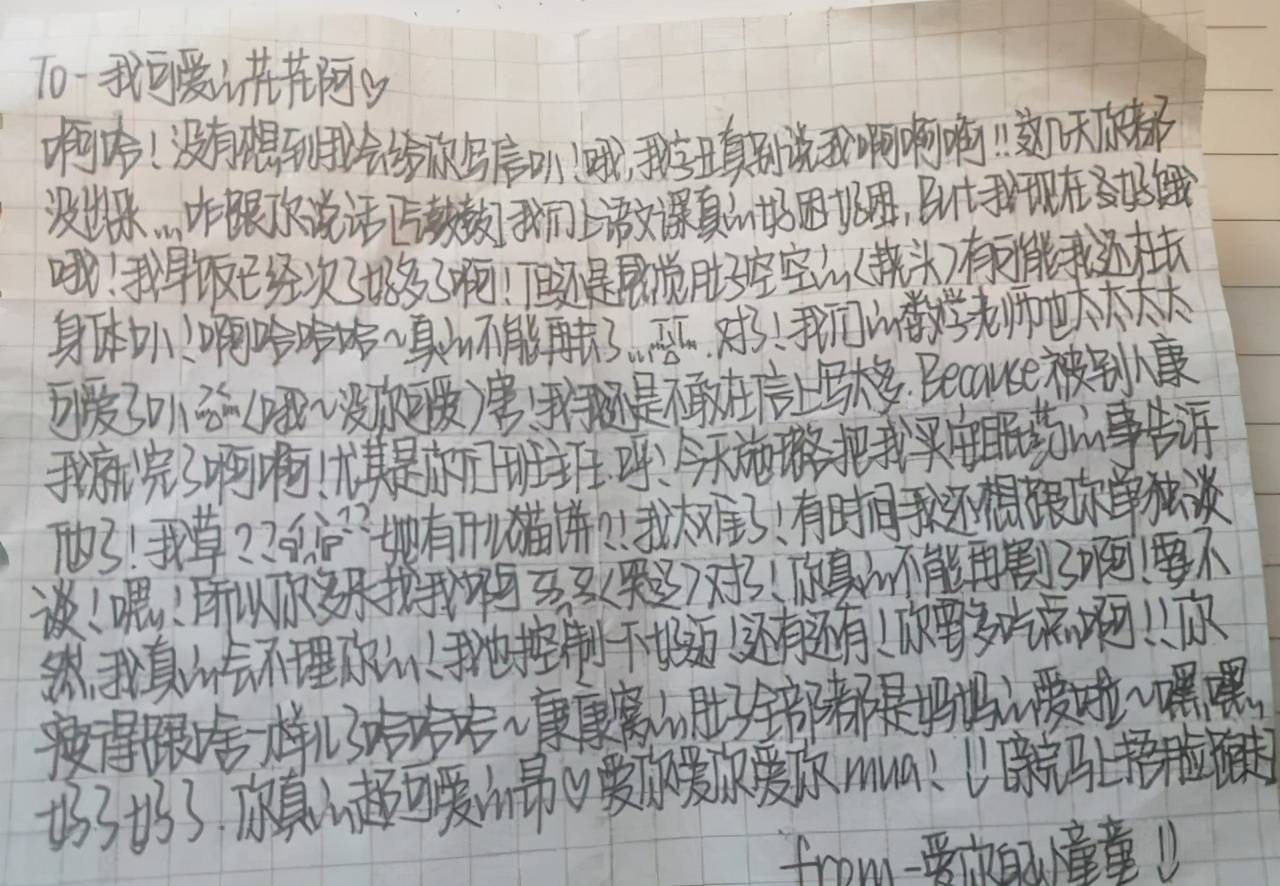 To-我可爱的花花阿♡
啊哈！没有想到我会给你写信叭！哦,我字丑真别说我啊啊啊!!这几天你都
没出来...咋跟你说话[气鼓鼓]我们上语文课真的好困好困,But我现在又好饿
哦！我早饭已经次了好多了啊！但还是感觉肚子空空的(挠头)有可能我还在去
身体叭！啊哈哈哈~真的不能再去了...对了！我们的数学老师也太太太太
可爱了叭(哦~没你可爱)害！我我还是不敢在信上写太多.Because被别人康
我就完了啊啊！尤其是你们班班主任.呼！今天施璐把我买安眠药的事告诉
他了！我草??她有什么猫饼?!我太难了！有时间我还想跟你单独谈
谈！嘿！所以你多来找我啊(哭泣)对了！你真的不能再割了啊！要不
然,我真的会不理你的！我也控制一下好迈！还有还有！你要多吃点啊!!你
瘦得跟啥一样儿了哈哈哈~康康窝的肚子全部都是妈妈的爱啦~嘿,嘿,
好了好了.你真的超可爱的昂♡爱你爱你爱你mua！!![亲完马上捂脸跑走]
from-爱你的童童!!